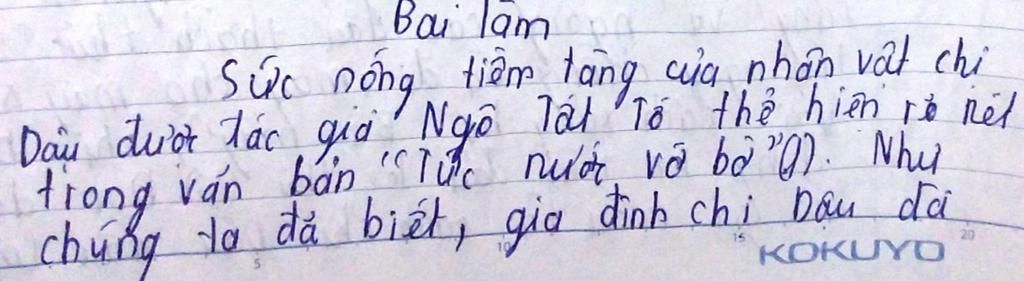 Bài làm
Sức nóng tiềm tàng của nhân vật chị
Dậu được tác giả Ngô Tất Tố thể hiện rõ nét
trong văn bản "Tức nước vỡ bờ"(1). Như
chúng ta đã biết, gia đình chị Dậu đã
KOKUYO
5 10 15 20